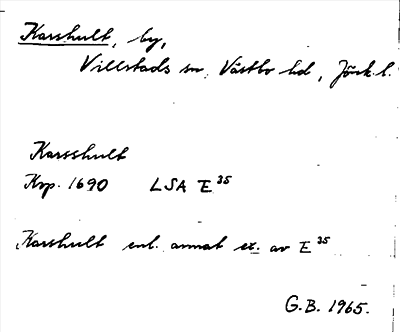 Karshult, by,
Villstads sn, Västbo hd, Jönk. l.
Karsshult
Krp. 1690 LSA E 35
Karshult enl. annat ex. av E 35
G.B. 1965.